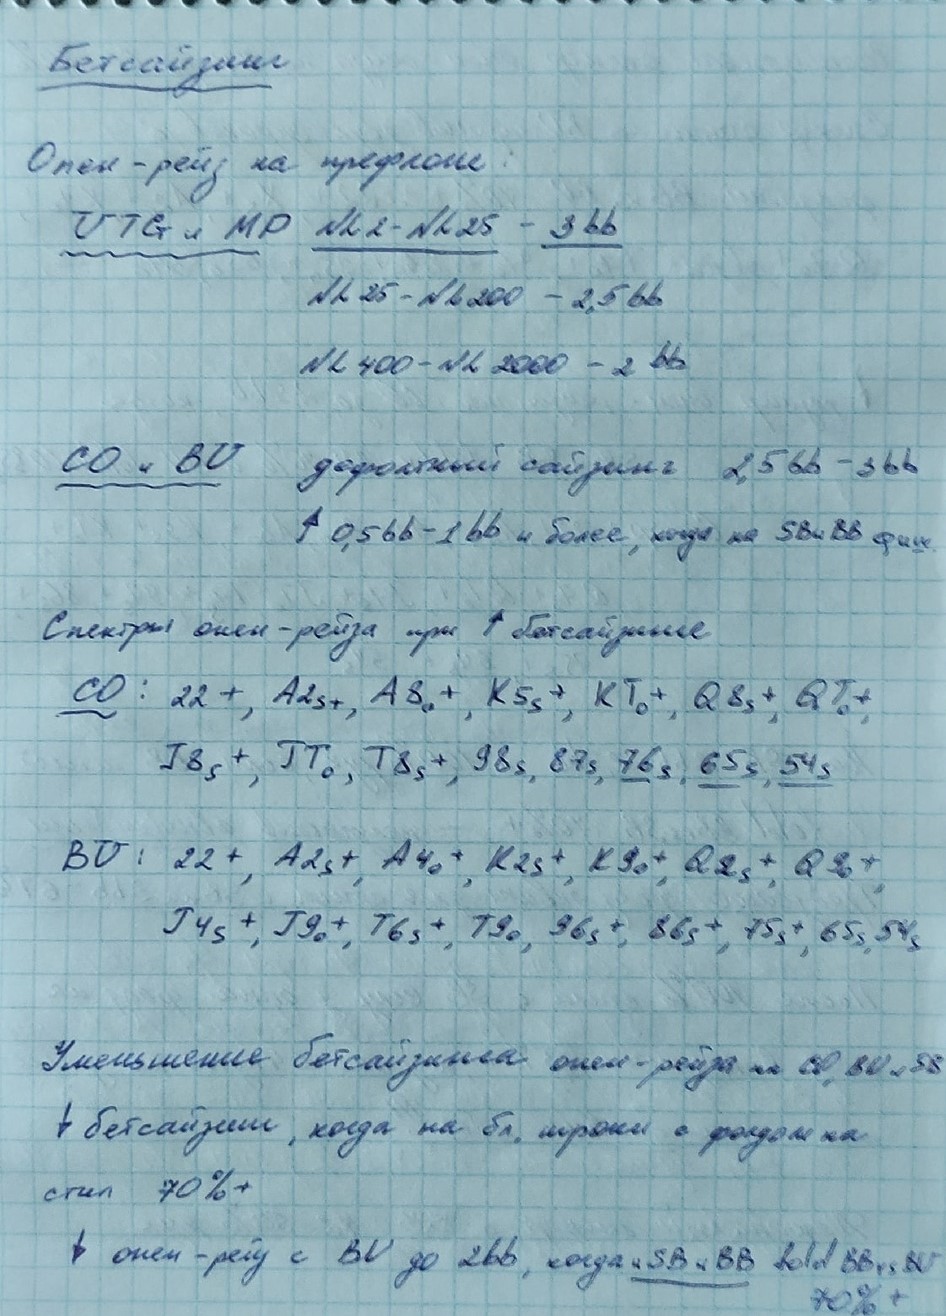 Бетсайзинг
Опен-рейз на префлопе:
UTG и MP NL2-NL25 - 3bb
NL25-NL200 - 2,5bb
NL400-NL2000 - 2bb
CO и BU дефолтный сайзинг 2,5bb-3bb
↑ 0,5bb-1bb и более, когда на SB и BB фиш.
Спектры опен-рейза при ↑ бетсайзинге
CO: 22+, A2s+, A8o+, K5s+, KTo+, Q8s+, QTo+,
J8s+, JTo, T8s+, 98s, 87s, 76s, 65s, 54s
BU: 22+, A2s+, A4o+, K2s+, K9o+, Q2s+, Q9o+,
J4s+, J9o+, T6s+, T9o, 96s+, 86s+, 75s+, 65s, 54s
Уменьшение бетсайзинга опен-рейза на CO, BU и SB
↓ бетсайзинг, когда на бл. игроки с фолдом на
стил 70%+
↓ опен-рейз с BU до 2bb, когда и SB и BB fold BB vs BU
70%+